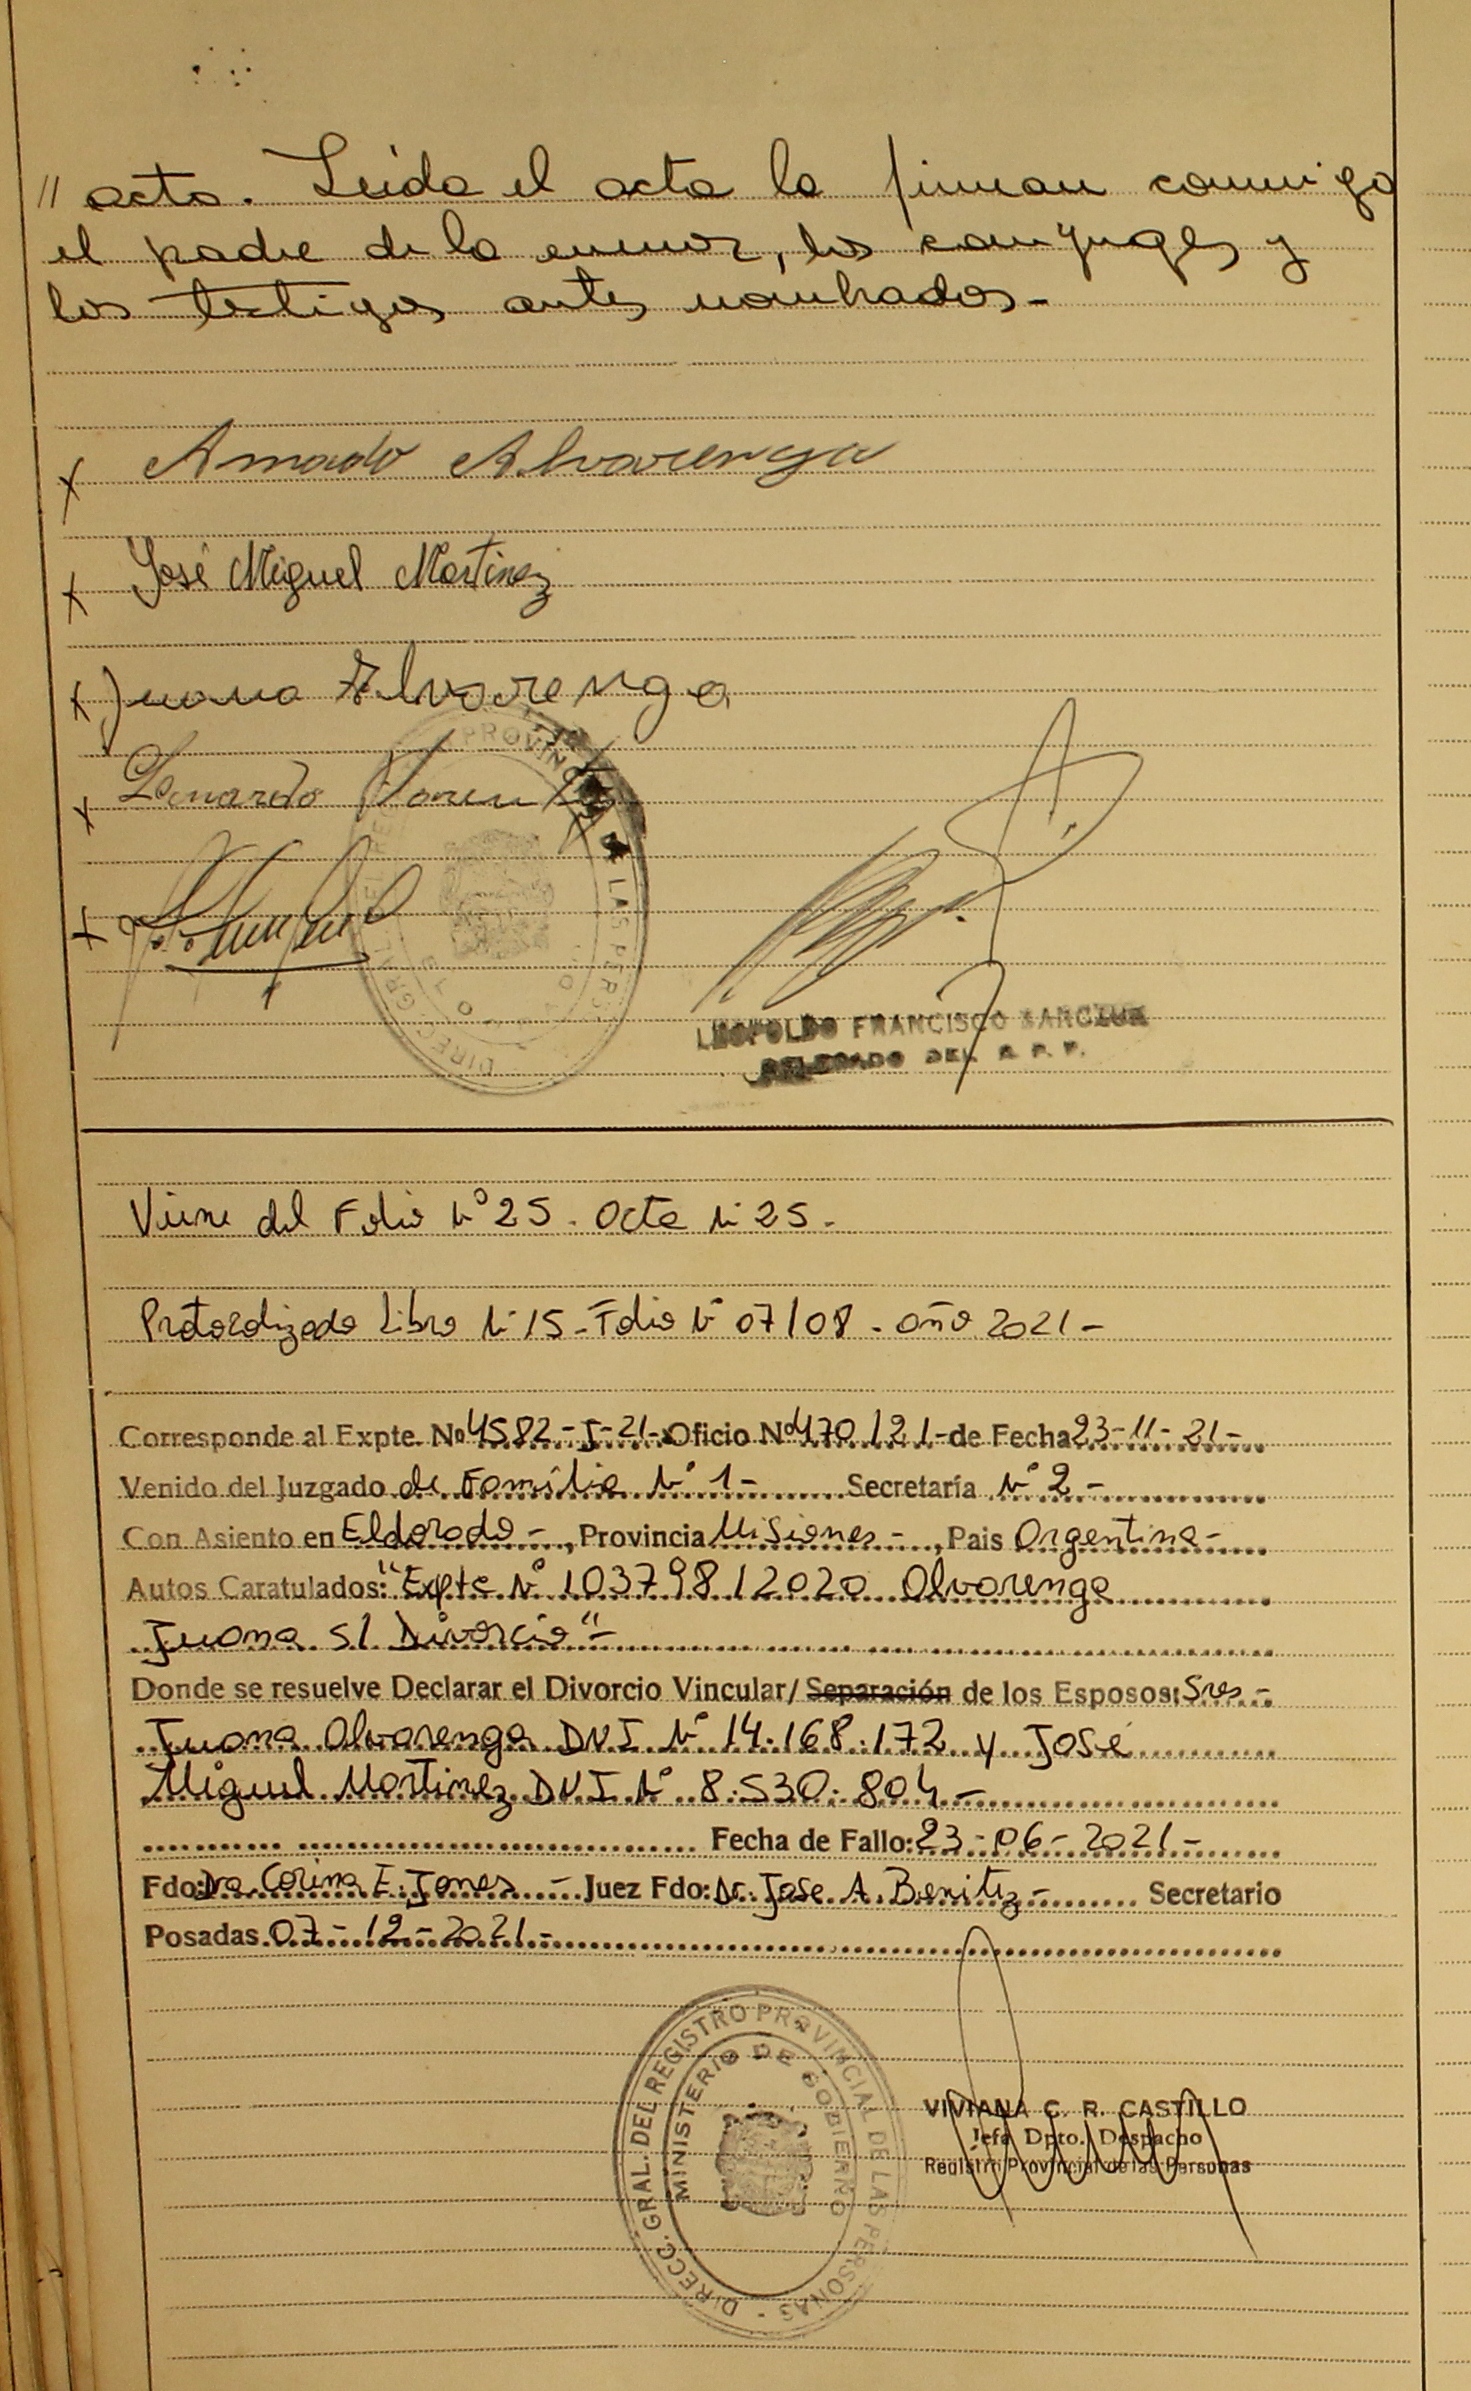 // acto. Leida el acta la firman conmigo
el padre de la menor, los conyuges y
los testigos antes nombrados.-
x Amado Alvarenga
x José Miguel Martinez
x Juana Alvarenga
x Leonardo
x
DIRECC. GRAL. DEL REG PROVINCIAL DE LAS PERS
LEOPOLDO FRANCISCO
DELEGADO DEL R. P. P.
Viene del Folio Nº 25. Acta Nº 25.-
Protocolizado Libro Nº 15 - Folio Nº 07/08 - año 2021 -
Corresponde al Expte. Nº 4582-J-21- Oficio Nº 470/21- de Fecha 23-11-21-
Venido del Juzgado de Familia Nº 1- Secretaría Nº 2-
Con Asiento en Eldorado-, Provincia Misiones-, Pais Argentina-
Autos Caratulados: "Expte Nº 103798/2020 Alvarenga
Juana s/ Divorcio"-
Donde se resuelve Declarar el Divorcio Vincular/ Separación de los Esposos: Sres-
Juana Alvarenga DNI Nº 14.168.172 y José
Miguel Martinez DNI Nº 8.530.804-
Fecha de Fallo: 23-06-2021-
Fdo: Dra. Corina E. Jones - Juez Fdo: Dr. Jose A. Benitez- Secretario
Posadas 07-12-2021-
DIRECC. GRAL. DEL REGISTRO PROVINCIAL DE LAS PERSONAS -
MINISTERIO DE GOBIERNO
VIVIANA C. R. CASTILLO
Jefa Dpto. Despacho
Registro Provincial de las Personas